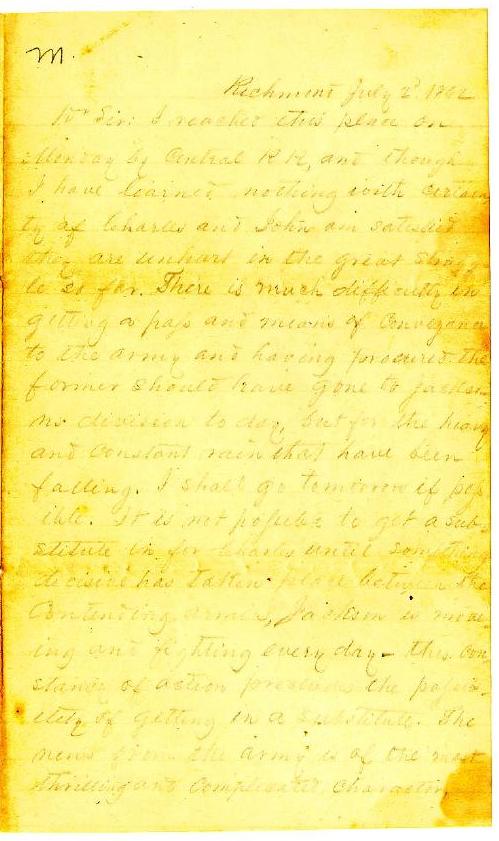 M.
Richmond July 2d. 1862
Dr Sir: I reached this place on
Monday by Central R R, and though
I have learned nothing with certain
ty of Charles and John am satisfied
they are unhurt in the great strugg
le so far. There is much difficulty in
getting a pass and means of conveyance
to the army and having procured the
former should have gone to Jackso
ns division to day, but for the heavy
and constant rain that have been
falling. I shall go tomorrow if poss
ible. It is not possible to get a sub-
stitute in for Charles until something
decisive has taken place between the
contending armies, Jackson is mov
ing and fighting every day - this con
stancy of action precludes the possib-
ility of getting in a substitute. The
news from the army is of the most
thrilling and character,